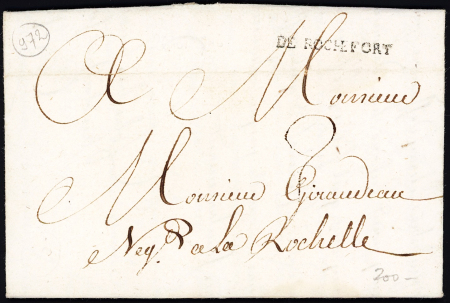 972
DE ROCHEFORT
A Monsieur
2
Monsieur Giraudeau
Neg.t a La Rochelle
200 -